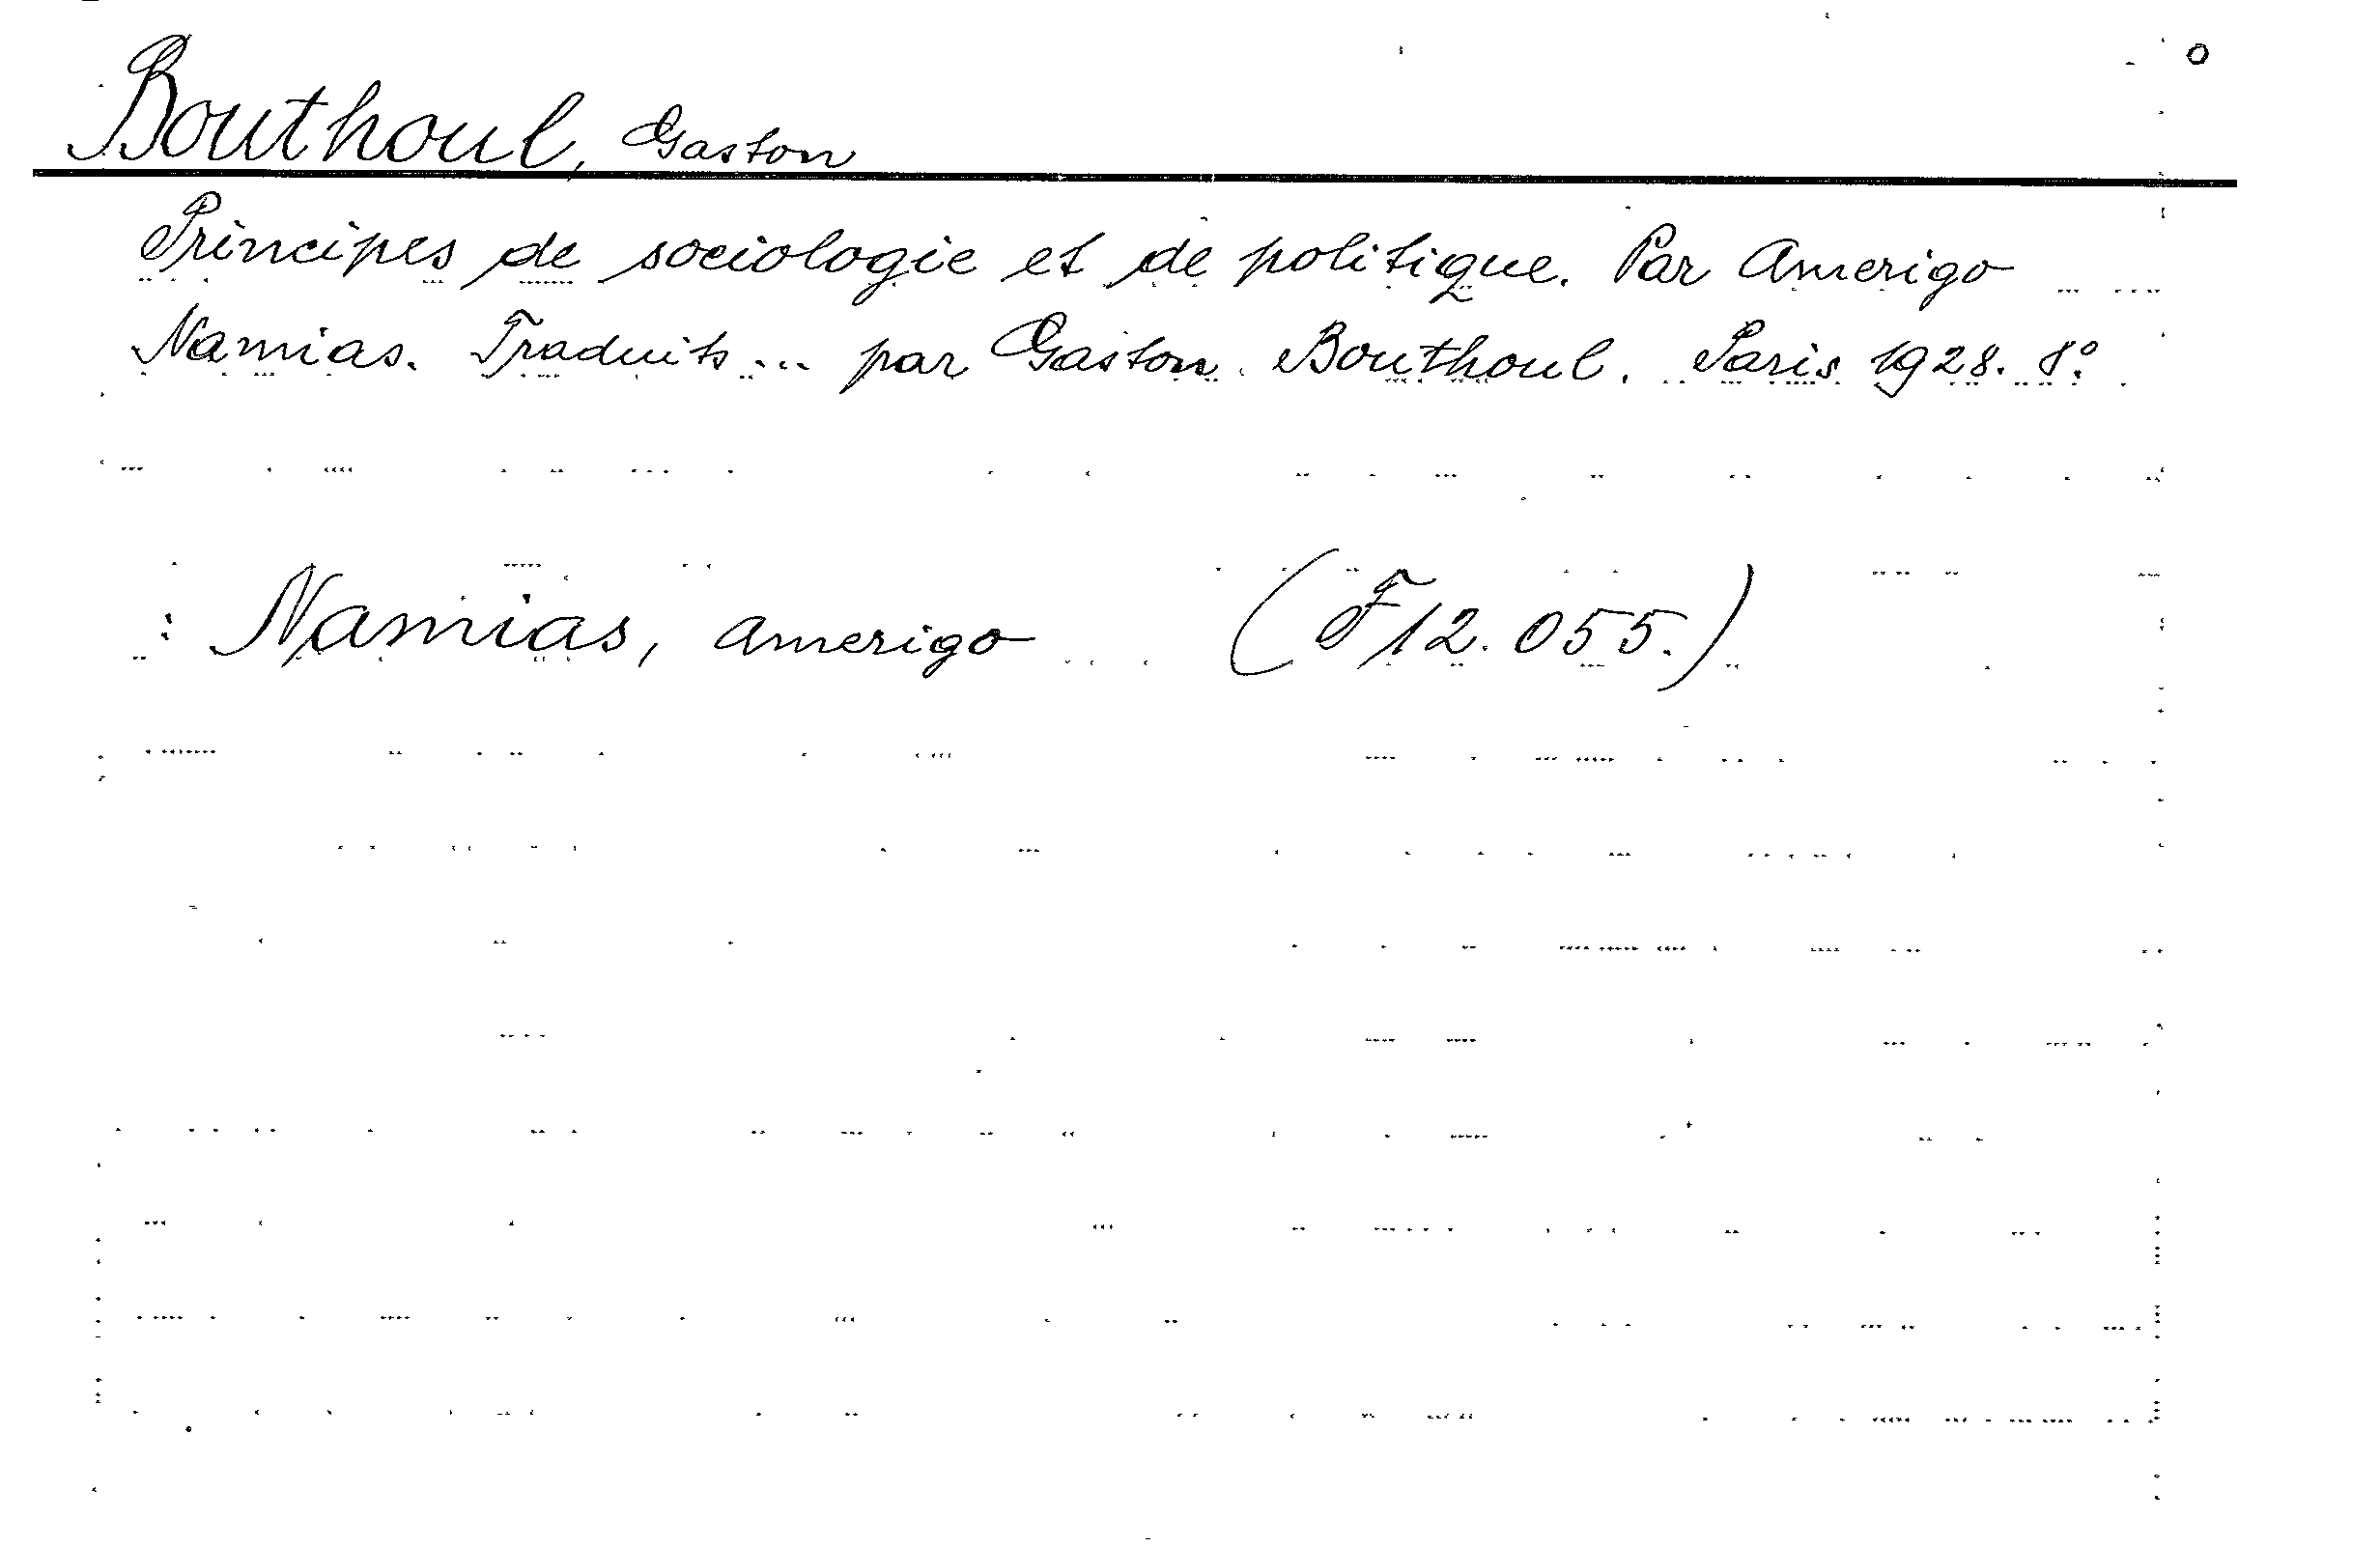 Bouthoul, Gaston
Principes de sociologie et de politique. Par Amerigo
Namias. Traduits ... par Gaston Bouthoul. Paris 1928. 8°.
: Namias, Amerigo (F12.055.)